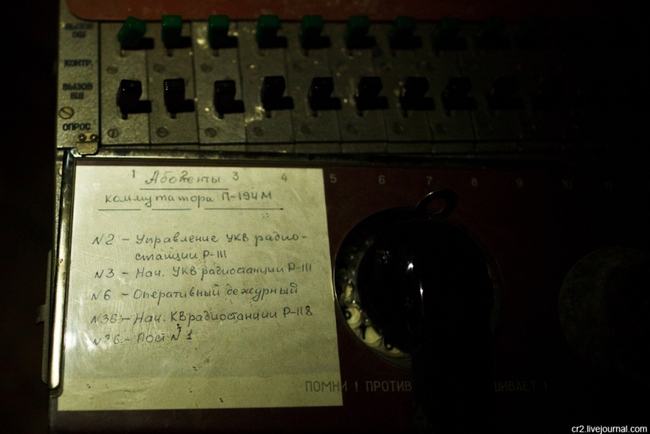 ВЫЗОВ
КОНТР.
ВЫЗОВ
ОПРОС
1 2 3 4 5 6 7 8 9 10 11
Абоненты
коммутатора П-194М
N2 – Управление УКВ радио-
станции Р-111
N3 – Нач. УКВ радиостанции Р-111
N6 – Оперативный дежурный
N36 – Нач. КВ радиостанции Р-118
Пост N1
ПОМНИ! ПРОТИВ
cr2.livejournal.com